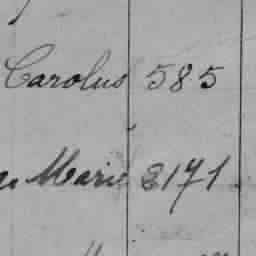 Carolus 585
Marie 2171